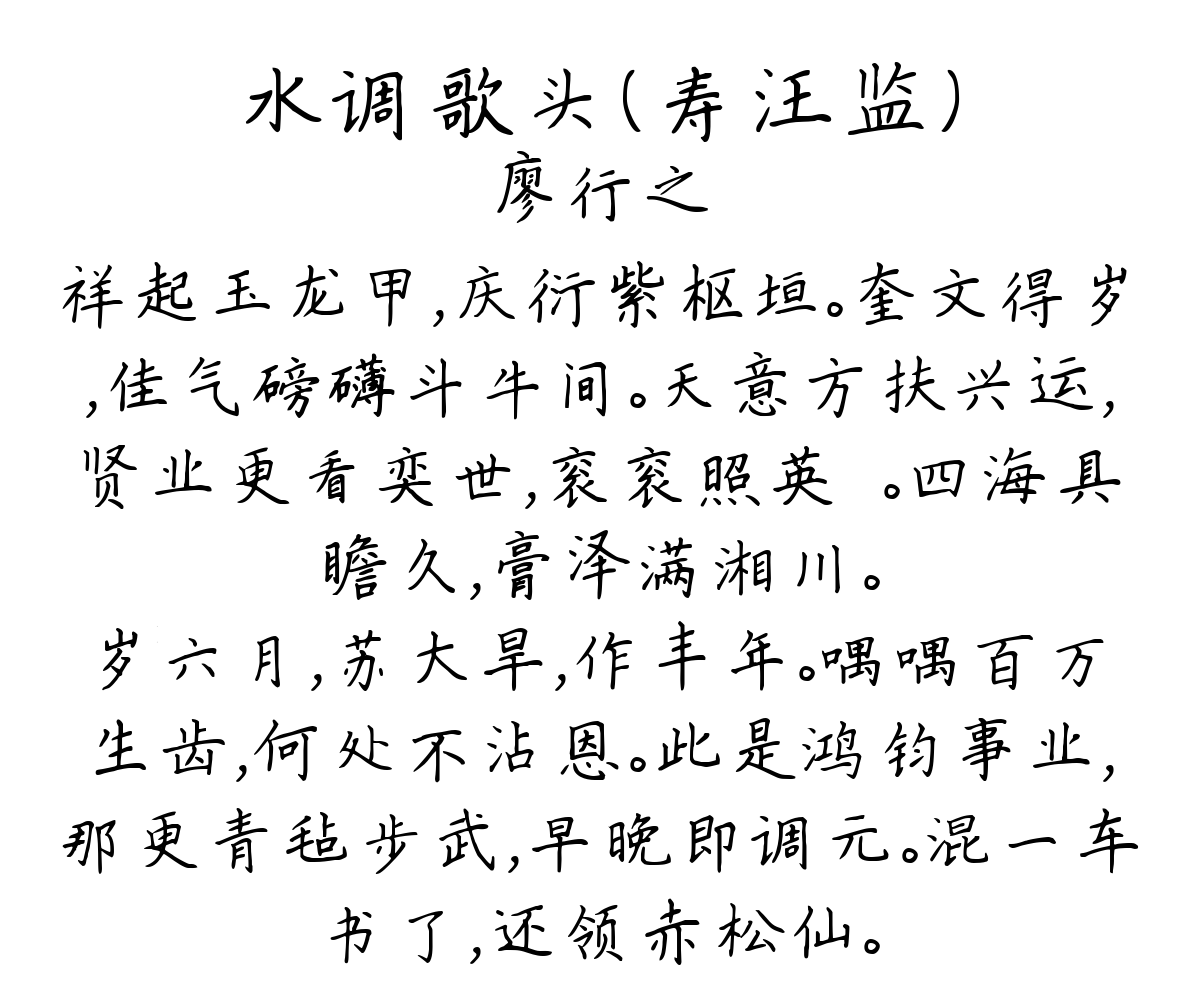 水调歌头(寿汪监)
廖行之
祥起玉龙甲,庆衍紫枢垣。奎文得岁
,佳气磅礴斗牛间。天意方扶兴运,
贤业更看奕世,衮衮照英 。四海具
瞻久,膏泽满湘川。
岁六月,苏大旱,作丰年。喁喁百万
生齿,何处不沾恩。此是鸿钧事业,
那更青毡步武,早晚即调元。混一车
书了,还领赤松仙。